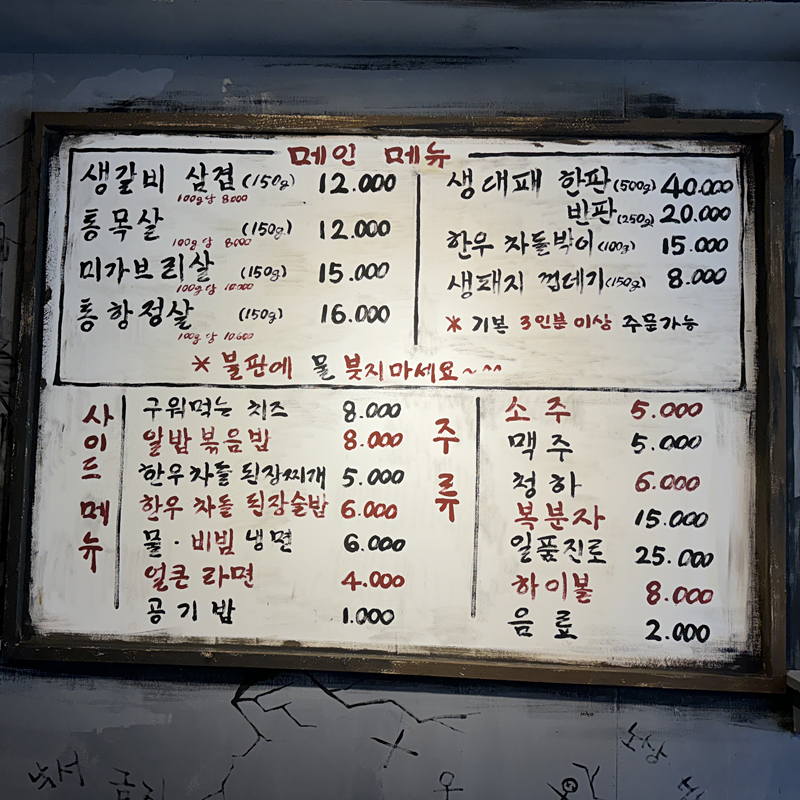 메인 메뉴
생갈비 삼겹 (150g) 12.000
100g당 8.000
통목살 (150g) 12.000
100g당 8.000
미가브리살 (150g) 15.000
100g당 10.000
통항정살 (150g) 16.000
100g당 10.600
생대패 한판 (500g) 40.000
반판 (250g) 20.000
한우 차돌박이 (100g) 15.000
생돼지 껍데기 (150g) 8.000
* 기본 3인분 이상 주문가능
* 불판에 물 붖지마세요~^^
사이드 메뉴
구워먹는 치즈 8.000
알밥볶음밥 8.000
한우차돌 된장찌개 5.000
한우 차돌 된장술밥 6.000
물·비빔 냉면 6.000
얼큰 라면 4.000
공기밥 1.000
주류
소주 5.000
맥주 5.000
청하 6.000
복분자 15.000
일품진로 25.000
하이볼 8.000
음료 2.000